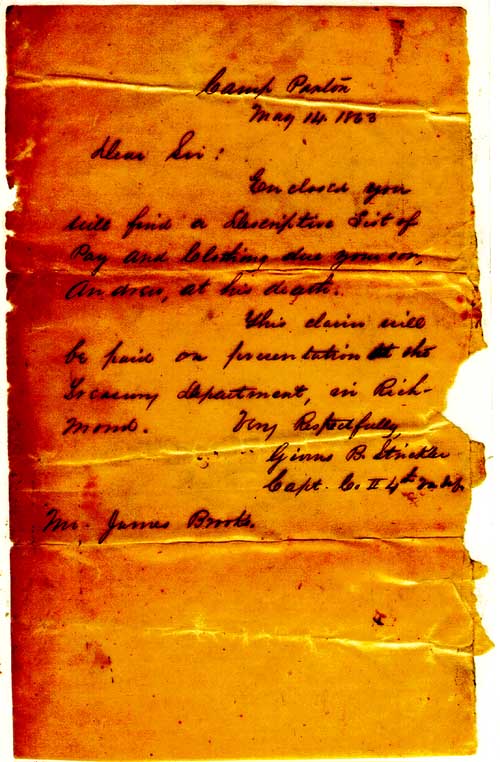 Camp Paxton
May 14. 1863
Dear Sir:
Enclosed you
will find a Descriptive List of
Pay and Clothing due your son,
Andrew, at his death.
This claim will
be paid on presentation at the
Treasury Department, in Rich-
mond. Very Respectfully,
Givens B. Strickler
Capt. C. I 4th Va. Inf.
Mr. James Brooks.